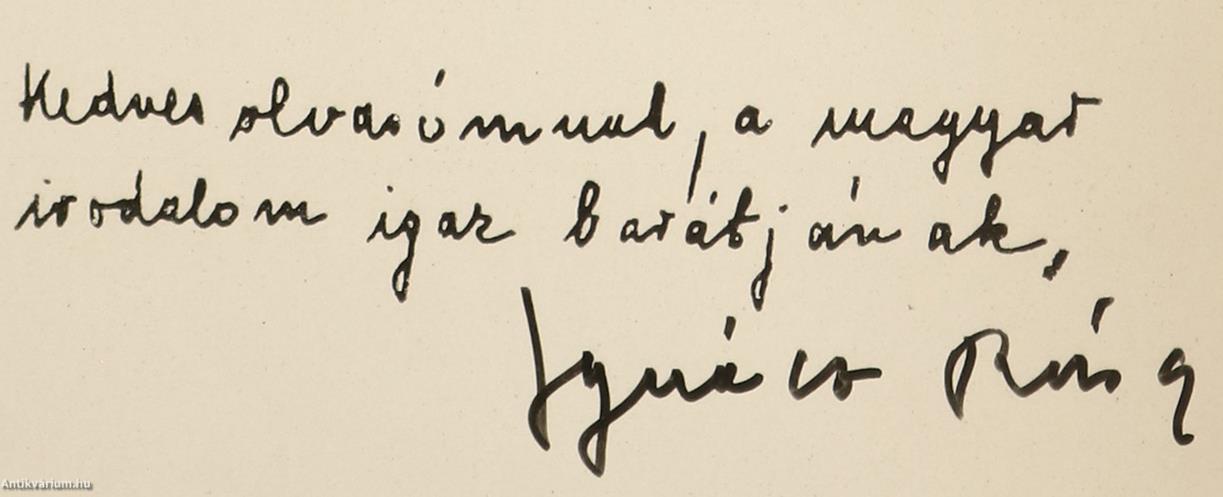 Kedves olvasómnak, a magyar
irodalom igaz barátjának,
Ignácz Rózsa
Antikvarium.hu